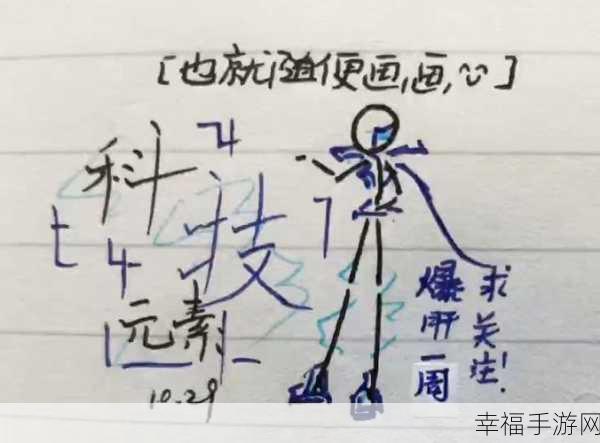 [也就随便画画,ツ]
科
技
元素
10.29
爆肝一周
求关注!
幸福手游网